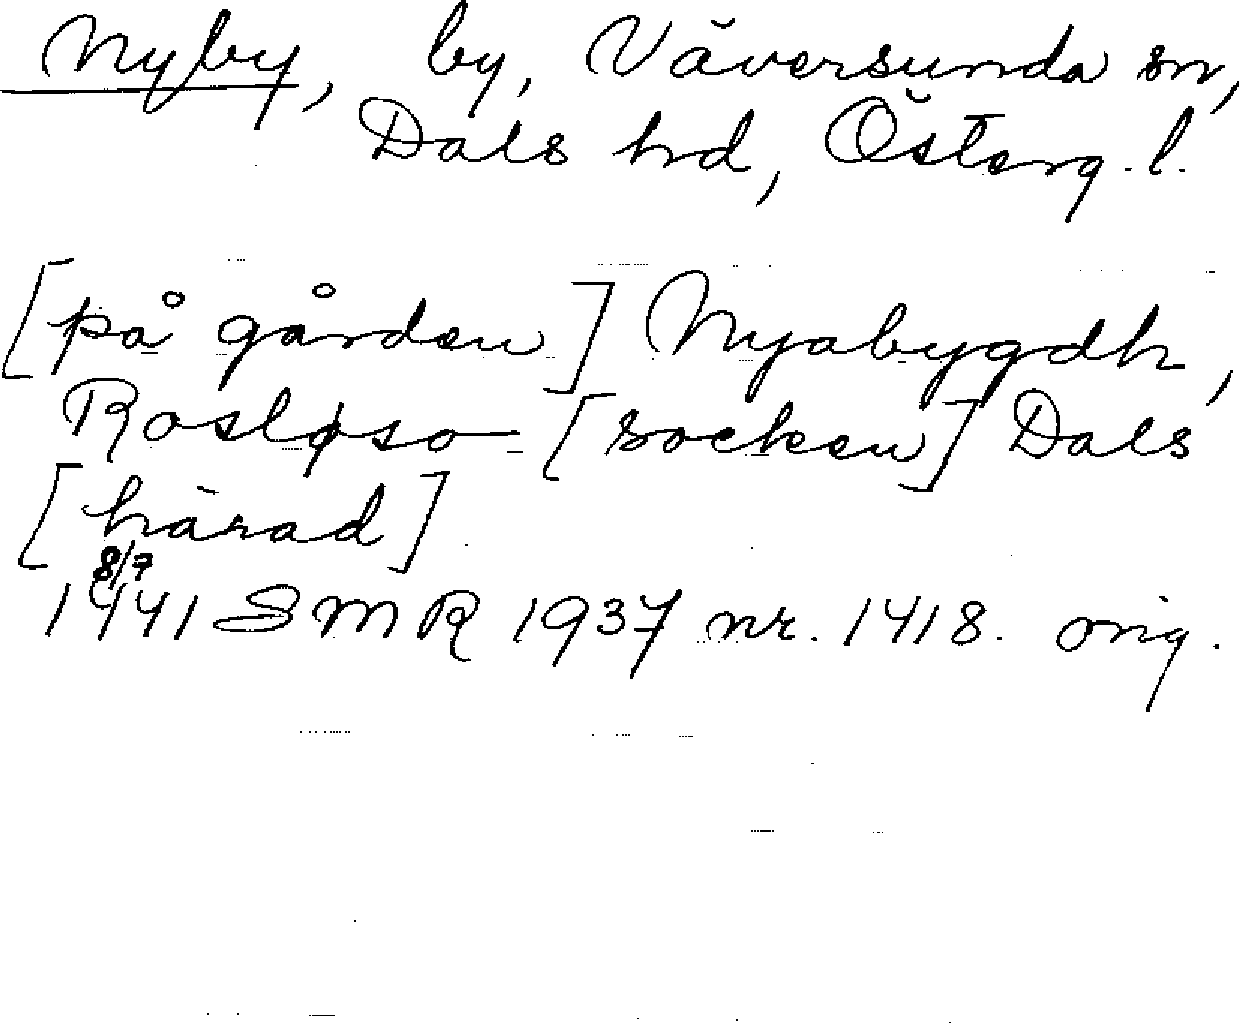 Nyby, by, Väversunda sn,
Dals hd, Österg.l.
[på gården] Nyabygdh,
Rosløso [socken] Dals
[härad]
8/7
1441 SMR 1937 nr. 1418. orig.